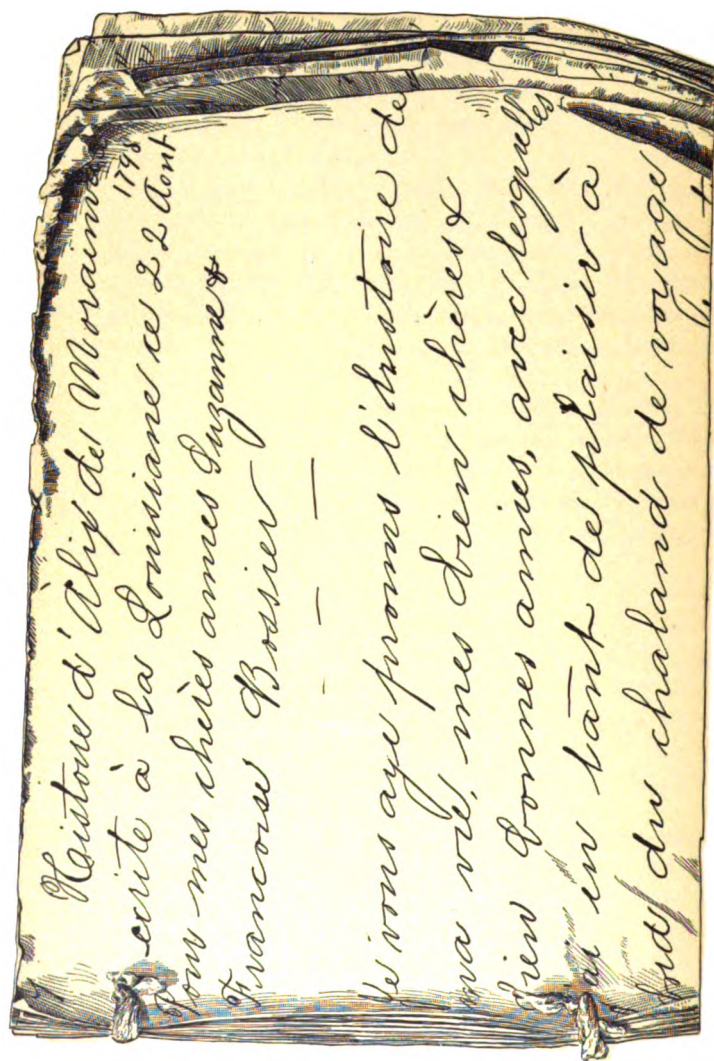 Histoire d'Alix de Morainv
1798
ecrite à la Louisiane ce 22 Aout
pour mes chères amies Suzanne &
Francoise Bossier
Je vous aye promis l'histoire de
ma vie, mes bien chères &
bien bonnes amies, avec lesquelles
ai eu tant de plaisir à
bord du chaland de voyage